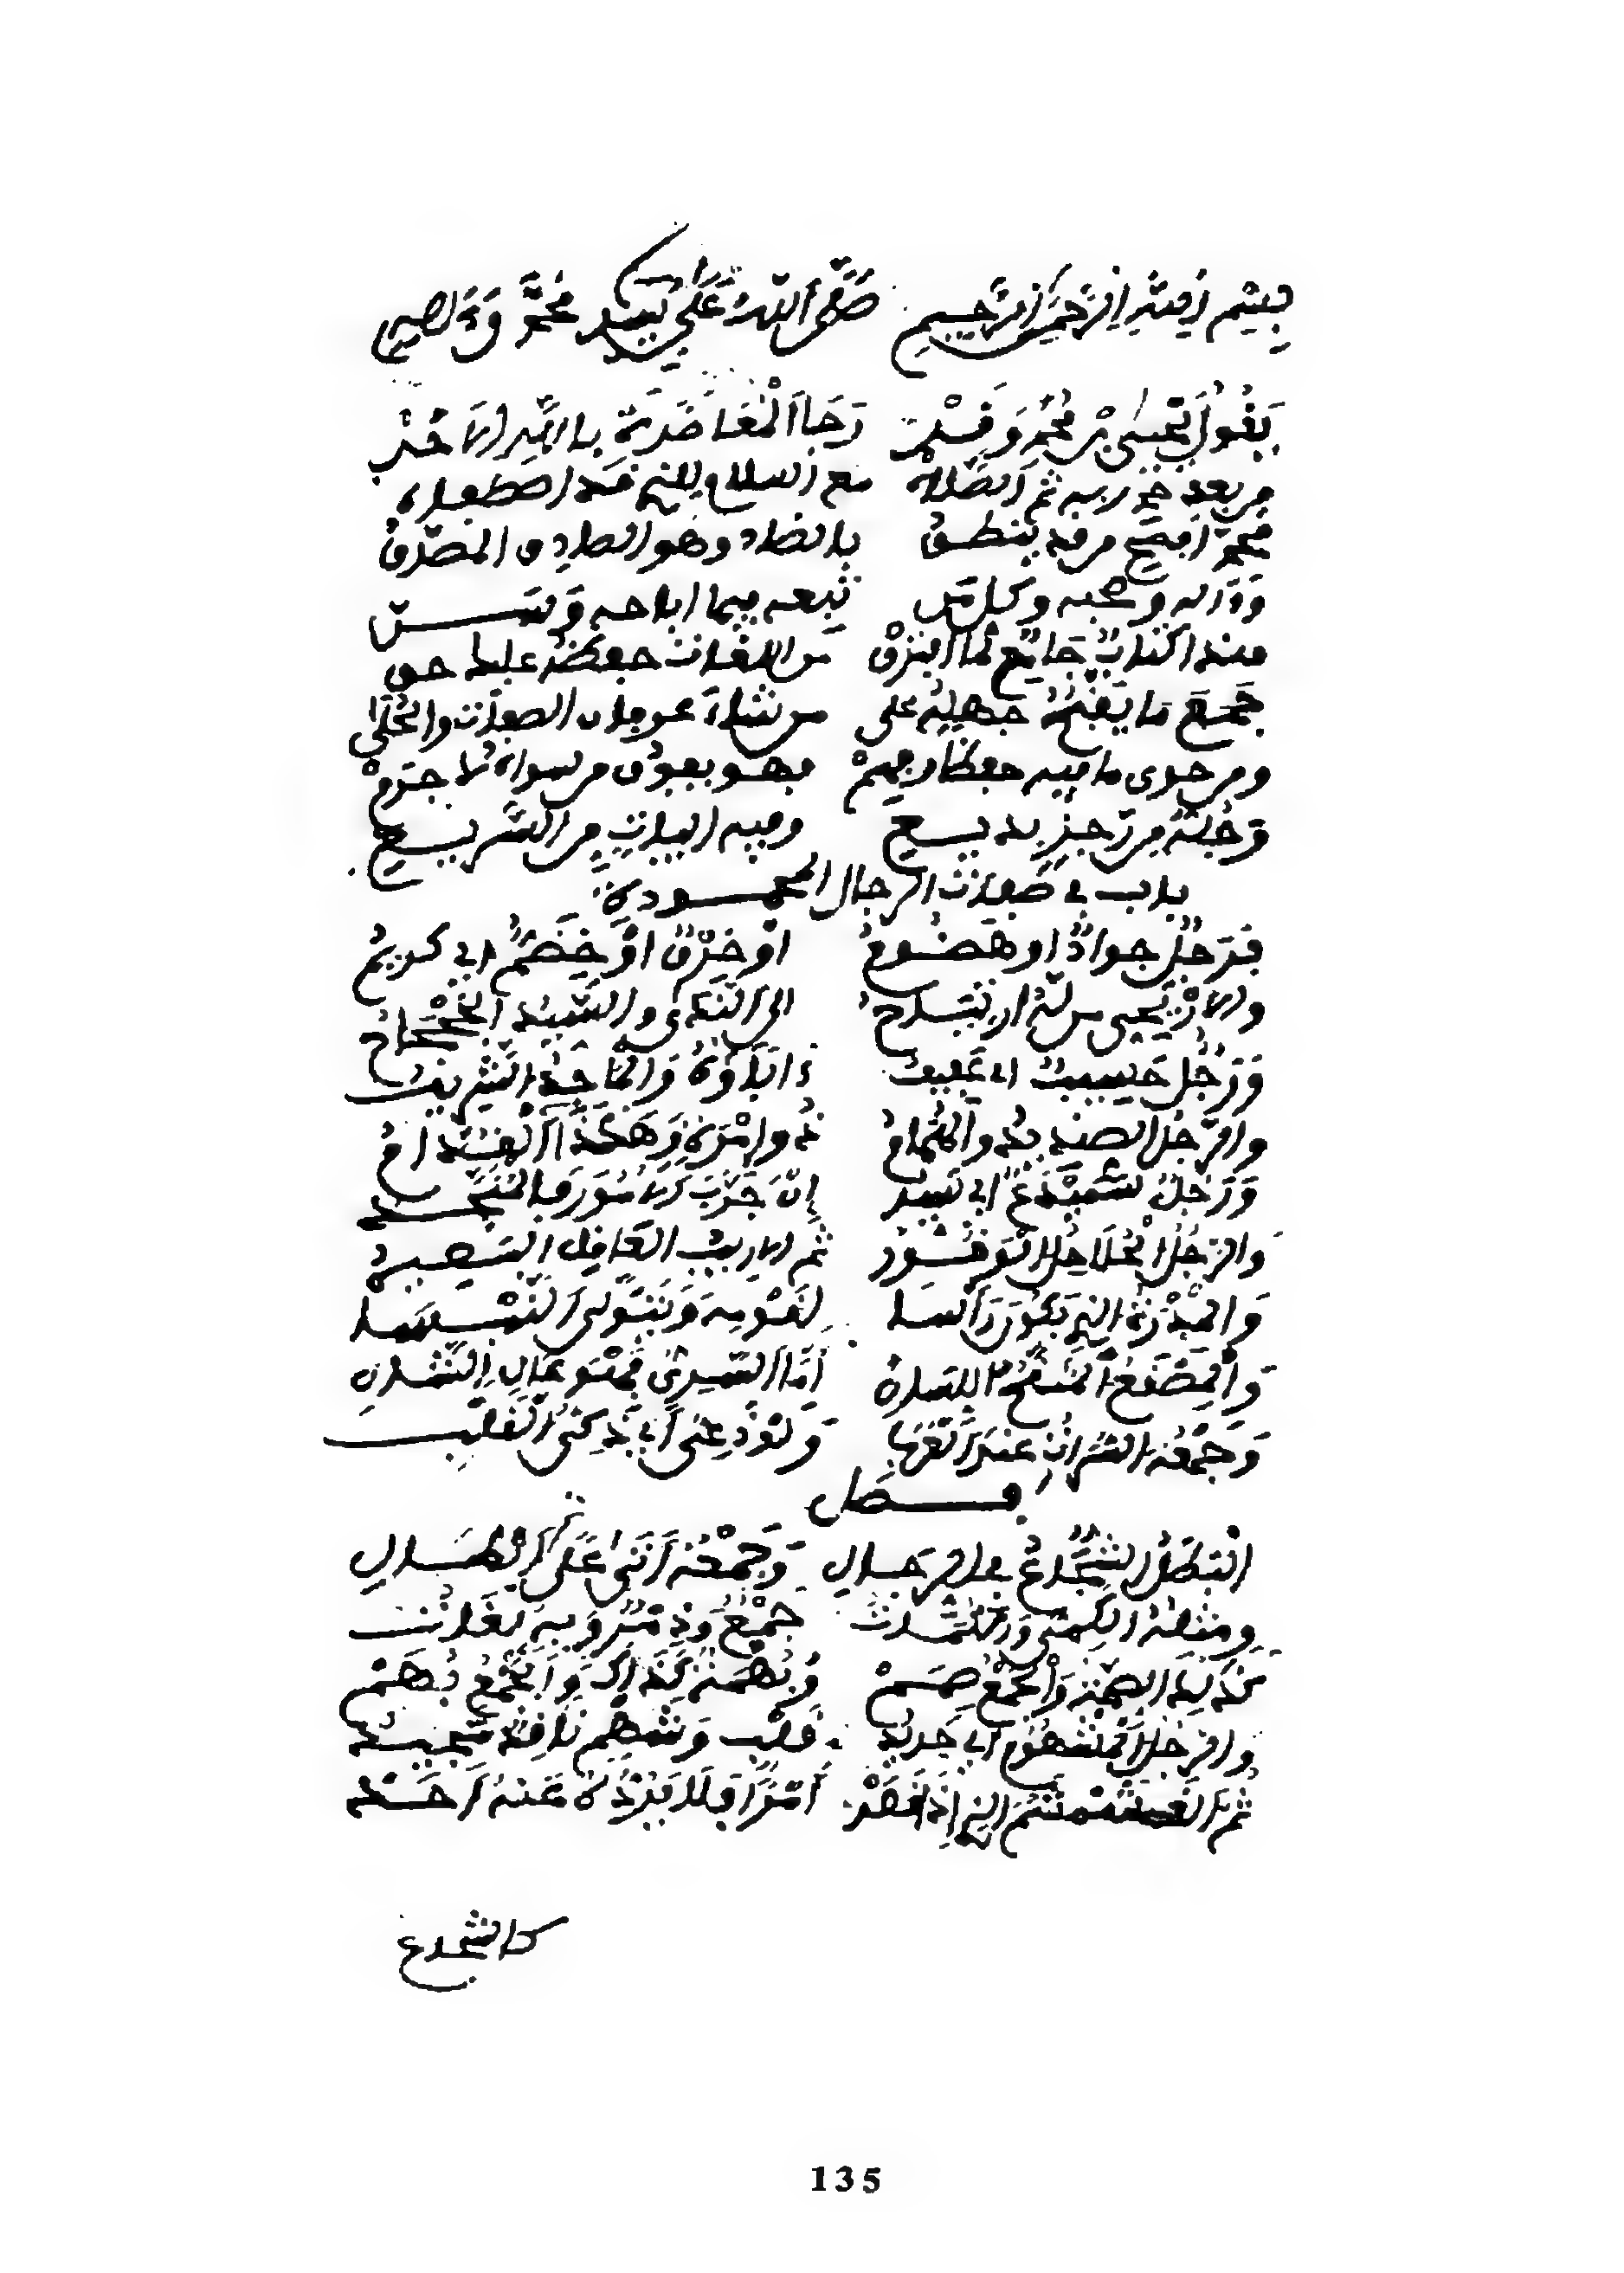 بسم الله الرحمن الرحيم صلى الله على سيد محمد وءاله
يقول يحيى بن محمد وقسمت رجا المغافرة بالله
من بعد حمد ربه ثم الصلاة مع السلام للنبي قد اصطفاه
محمد افصح من قد ينطق بالضاد وهو الصادق المصدق
وءاله وصحبه وكل من تبعه فيما اباحه وسن
هذا كتاب جامع لما افترق من اللغات حفظه علينا حق
جمع ما يقبح جهله على من شاء عرفان الصفات والحلى
ومن حوى ما فيه حفظا وفهم فهو يفوق من سواه لا جرم
وخلته من رجز بديع وفيه ابيات من السريع
باب في صفات الرجال المحمودة
فرجل جواد او هضوم او خرق او خضم اي كريم
والاريحي من له ارتياح الى الندى والسيد الجحجاح
ورجل حسيب اي عفيف ءاباؤه والماجد الشريف
والرجل الصنديد والهمام ذو امرة وهكذا القمقام
ورجل سميدع اي سيد ان جرب الامور فالمنجد
والرجل الحلاحل الوقور ثم الاريب العاقل البصير
والمدره الذي يكون رأسا لقومه ويتولى البأسا
والمصقع المفوه اللسان اما السري فهو عالي الشان
وجمعه السراة عند العرب ولوذعي اي ذكي القلب
فصل
البطل الشجاع في الرجال وجمعه اتى على ابطال
ومثله الكمي والكماة جمع وذمر وبه لغات
كذلك الصمة والجمع صمم وبهمة كذاك والجمع بهم
والرجل المشهوم اي حديد قلب وشهم نافذ نجيد
ثم الغشمشم الذي اذا قصد أمرا فلا يرده عنه احد
كالشجاع
135